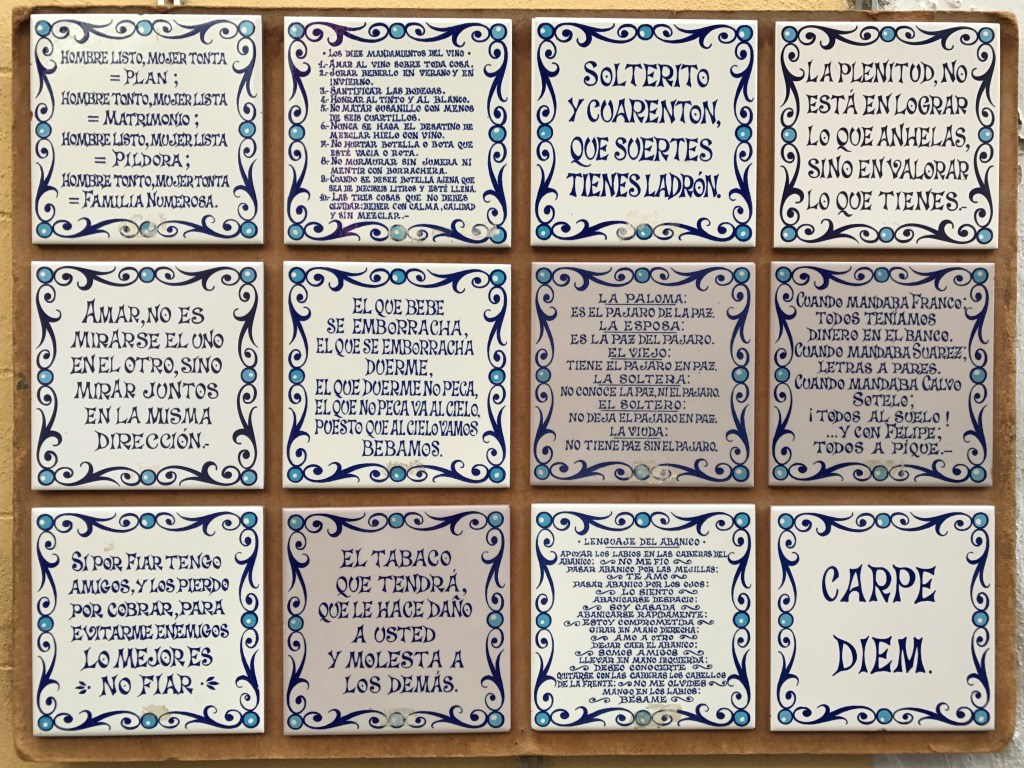 HOMBRE LISTO, MUJER TONTA
= PLAN ;
HOMBRE TONTO, MUJER LISTA
= MATRIMONIO ;
HOMBRE LISTO, MUJER LISTA
= PILDORA ;
HOMBRE TONTO, MUJER TONTA
= FAMILIA NUMEROSA.
· LOS DIEZ MANDAMIENTOS DEL VINO ·
1.- AMAR AL VINO SOBRE TODA COSA.
2.- JURAR BEBERLO EN VERANO Y EN
INVIERNO.
3.- SANTIFICAR LAS BODEGAS.
4.- HONRAR AL TINTO Y AL BLANCO.
5.- NO MATAR GUSANILLO CON MENOS
DE SEIS CUARTILLOS.
6.- NUNCA SE HAGA EL DESATINO DE
MEZCLAR HIELO CON VINO.
7.- NO HURTAR BOTELLA O BOTA QUE
ESTÉ VACIA O ROTA.
8.- NO MURMURAR SIN JUMERA NI
MENTIR CON BORRACHERA.
9.- CUANDO SE DESEE BOTELLA AJENA QUE
SEA DE DIECISEIS LITROS Y ESTÉ LLENA.
10.- LAS TRES COSAS QUE NO DEBES
OLVIDAR: BEBER CON CALMA, CALIDAD
Y SIN MEZCLAR.-
SOLTERITO
Y CUARENTON,
QUE SUERTES
TIENES LADRÓN.
LA PLENITUD, NO
ESTÁ EN LOGRAR
LO QUE ANHELAS,
SINO EN VALORAR
LO QUE TIENES.-
AMAR, NO ES
MIRARSE EL UNO
EN EL OTRO, SINO
MIRAR JUNTOS
EN LA MISMA
DIRECCIÓN.-
EL QUE BEBE
SE EMBORRACHA,
EL QUE SE EMBORRACHA
DUERME,
EL QUE DUERME NO PECA,
EL QUE NO PECA VA AL CIELO,
PUESTO QUE AL CIELO VAMOS
BEBAMOS.
LA PALOMA:
ES EL PAJARO DE LA PAZ.
LA ESPOSA:
ES LA PAZ DEL PAJARO.
EL VIEJO:
TIENE EL PAJARO EN PAZ.
LA SOLTERA:
NO CONOCE LA PAZ, NI EL PAJARO.
EL SOLTERO:
NO DEJA EL PAJARO EN PAZ.
LA VIUDA:
NO TIENE PAZ SIN EL PAJARO.
CUANDO MANDABA FRANCO;
TODOS TENÍAMOS
DINERO EN EL BANCO.
CUANDO MANDABA SUAREZ;
LETRAS A PARES.
CUANDO MANDABA CALVO
SOTELO;
¡TODOS AL SUELO!
...Y CON FELIPE;
TODOS A PIQUE.-
SI POR FIAR TENGO
AMIGOS, Y LOS PIERDO
POR COBRAR, PARA
EVITARME ENEMIGOS
LO MEJOR ES
NO FIAR
EL TABACO
QUE TENDRÁ,
QUE LE HACE DAÑO
A USTED
Y MOLESTA A
LOS DEMÁS.
· LENGUAJE DEL ABANICO ·
APOYAR LOS LABIOS EN LAS CABERAS DEL
ABANICO: NO ME FIO
PASAR ABANICO POR LAS MEJILLAS:
TE AMO
PASAR ABANICO POR LOS OJOS:
LO SIENTO
ABANICARSE DESPACIO:
SOY CASADA
ABANICARSE RAPIDAMENTE:
ESTOY COMPROMETIDA
GIRAR EN MANO DERECHA:
AMO A OTRO
DEJAR CAER EL ABANICO:
SOMOS AMIGOS
LLEVAR EN MANO IZQUIERDA:
DESEO CONOCERTE
QUITARSE CON LAS CABERAS LOS CABELLOS
DE LA FRENTE: NO ME OLVIDES
MANGO EN LOS LABIOS:
BÉSAME
CARPE
DIEM.